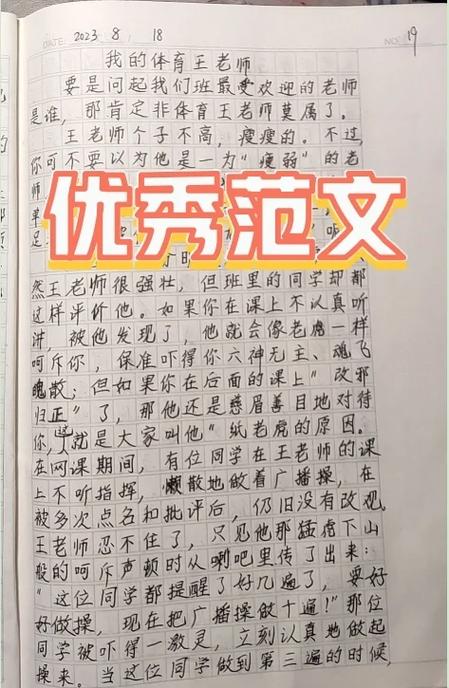 DATE 2023 8 18
NO. 19
我的体育王老师
要是问起我们班最受欢迎的老师
是谁，那肯定非体育王老师莫属了。
王老师个子不高，瘦瘦的。不过，
你可不要以为他是一为“瘦弱”的老
师
单
足
优秀范文
然王老师很强壮，但班里的同学却都
这样评价他。如果你在课上不认真听
讲，被他发现了，他就会像老虎一样
呵斥你，保准吓得你六神无主、魂飞
魄散；但如果你在后面的课上“改邪
归正”了，那他还是慈眉善目地对待
你，这就是大家叫他“纸老虎的原因。
在网课期间，有位同学在王老师的课
上不听指挥，懒散地做着广播操，在
被多次点名和批评后，仍旧没有改观。
王老师忍不住了，只见他那猛虎下山
般的呵斥声顿时从喇吧里传了出来：
“这位同学都提醒了好几遍了，要好
好做操，现在把广播操做十遍！”那位
同学被吓得一激灵，立刻认真地做起
操来。当这位同学做到第三遍的时候，